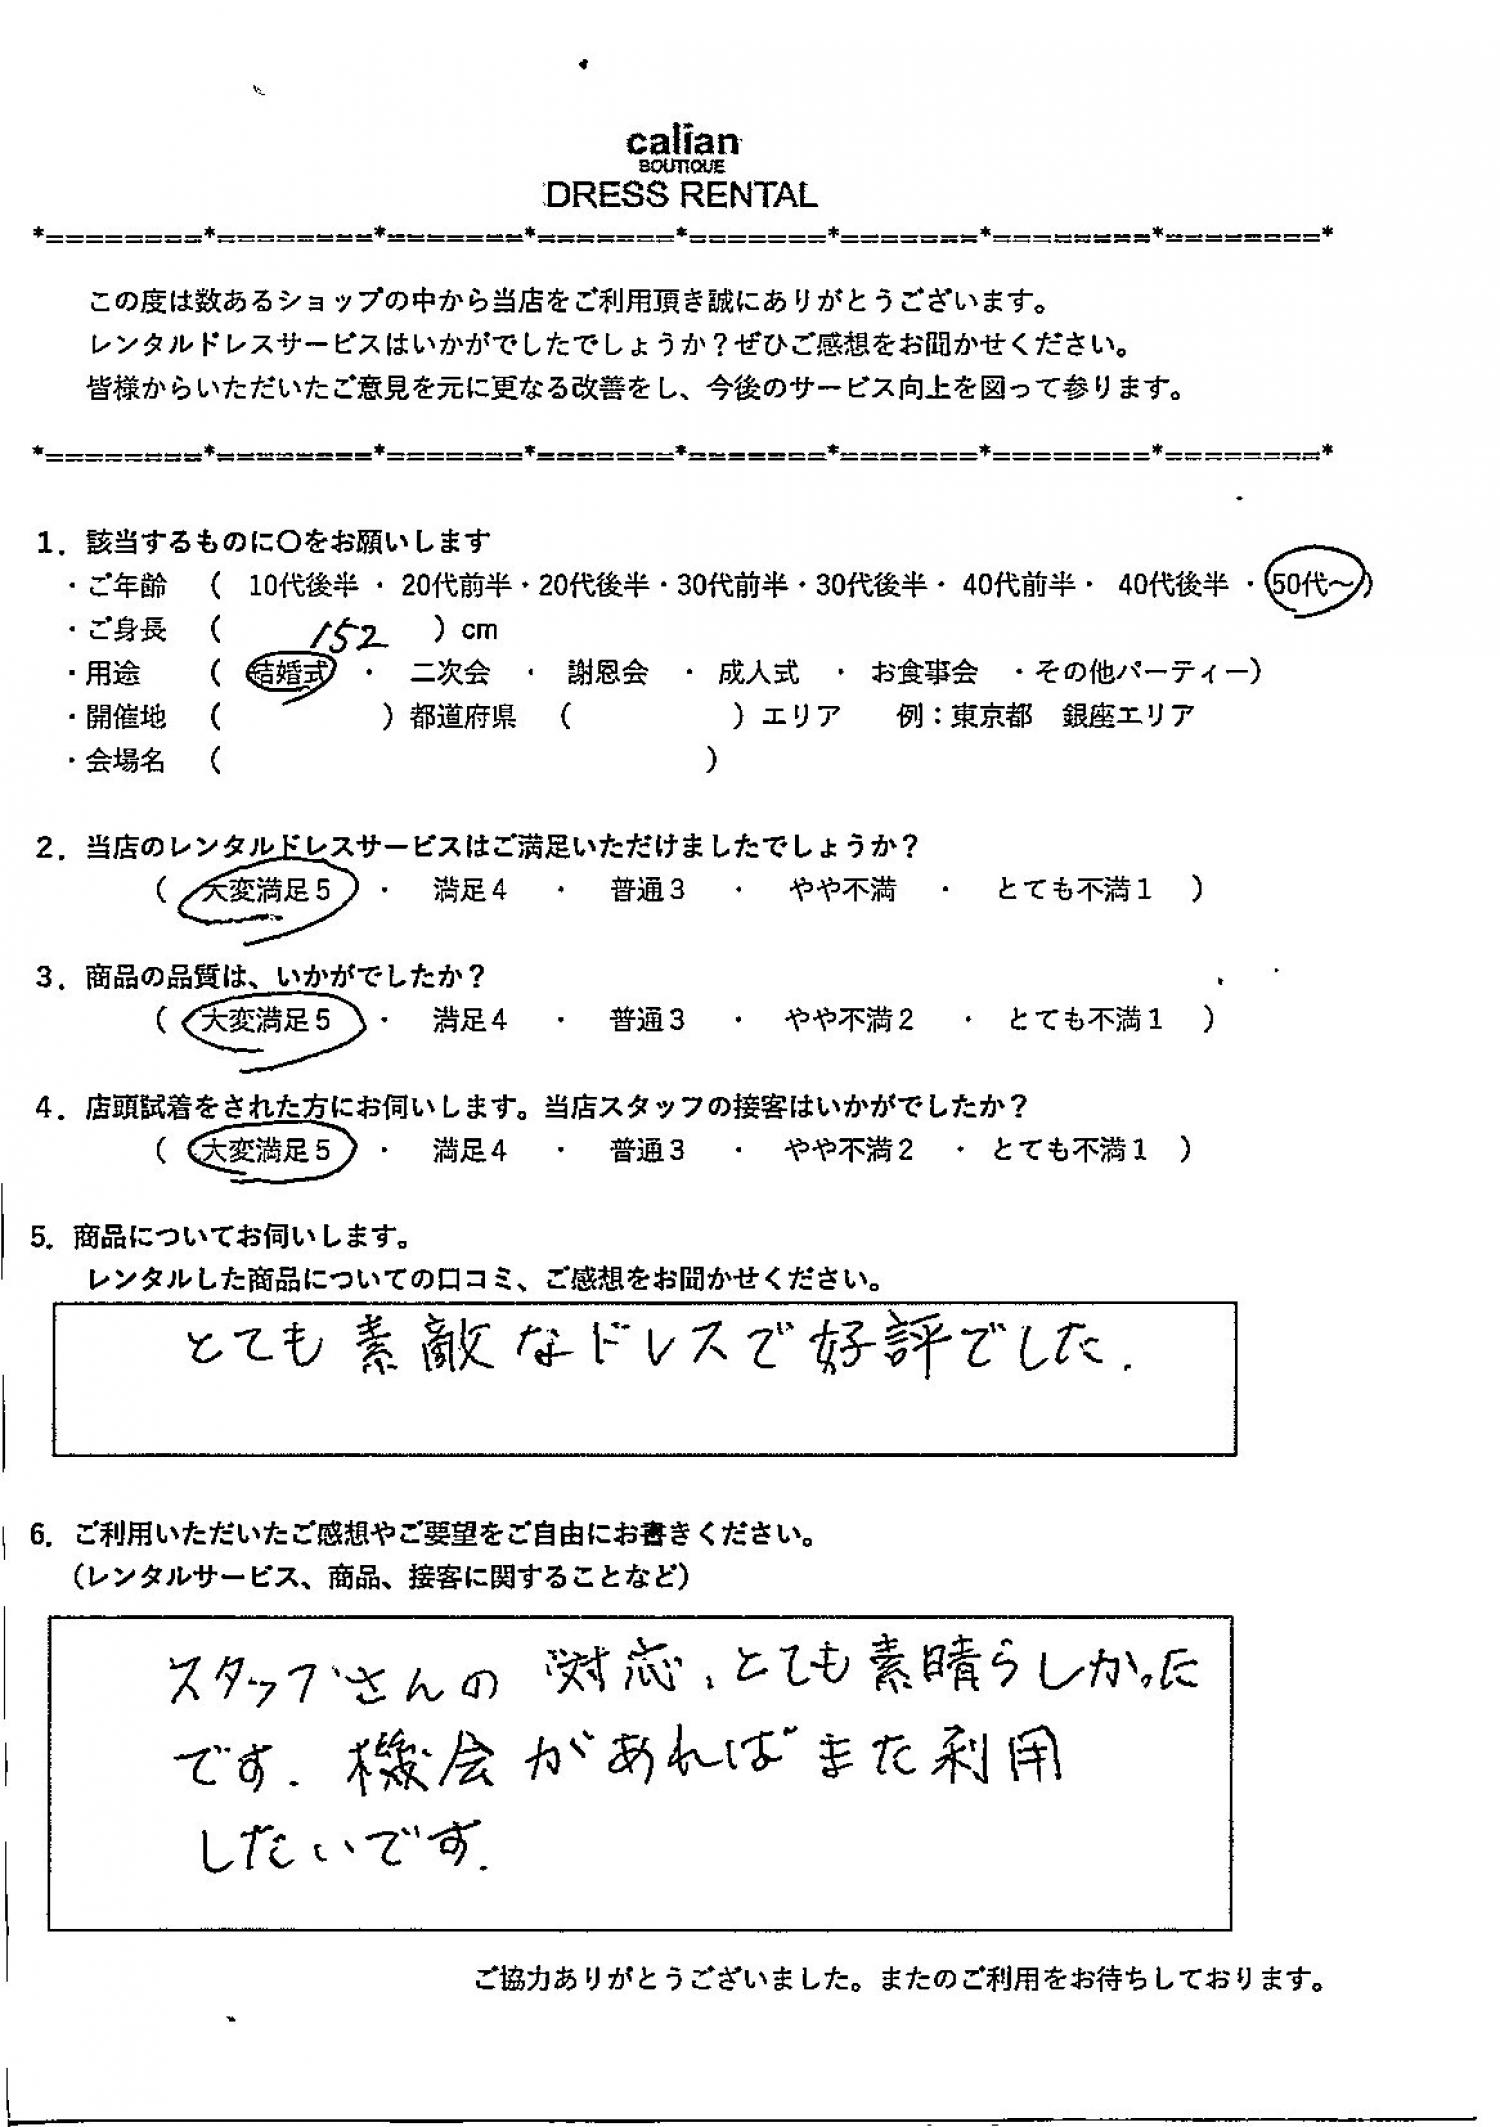 calian
BOUTIQUE
DRESS RENTAL
*========*========*=======*=======*=======*=======*========*========*
この度は数あるショップの中から当店をご利用頂き誠にありがとうございます。
レンタルドレスサービスはいかがでしたでしょうか？ぜひご感想をお聞かせください。
皆様からいただいたご意見を元に更なる改善をし、今後のサービス向上を図って参ります。
*========*========*=======*=======*=======*=======*========*========*
1．該当するものに〇をお願いします
・ご年齢 （ 10代後半 ・ 20代前半・20代後半・30代前半・30代後半・ 40代前半・ 40代後半 ・50代～）
・ご身長 （ 152 ）cm
・用途 （ 結婚式 ・ 二次会 ・ 謝恩会 ・ 成人式 ・ お食事会 ・その他パーティー）
・開催地 （ ）都道府県 （ ）エリア 例：東京都 銀座エリア
・会場名 （ ）
2．当店のレンタルドレスサービスはご満足いただけましたでしょうか？
（ 大変満足５ ・ 満足４ ・ 普通３ ・ やや不満 ・ とても不満１ ）
3．商品の品質は、いかがでしたか？
（ 大変満足５ ・ 満足４ ・ 普通３ ・ やや不満２ ・ とても不満１ ）
4．店頭試着をされた方にお伺いします。当店スタッフの接客はいかがでしたか？
（ 大変満足５ ・ 満足４ ・ 普通３ ・ やや不満２ ・ とても不満１ ）
5．商品についてお伺いします。
レンタルした商品についての口コミ、ご感想をお聞かせください。
とても素敵なドレスで好評でした．
6．ご利用いただいたご感想やご要望をご自由にお書きください。
（レンタルサービス、商品、接客に関することなど）
スタッフさんの対応、とても素晴らしかった
です．機会があればまた利用
したいです．
ご協力ありがとうございました。またのご利用をお待ちしております。